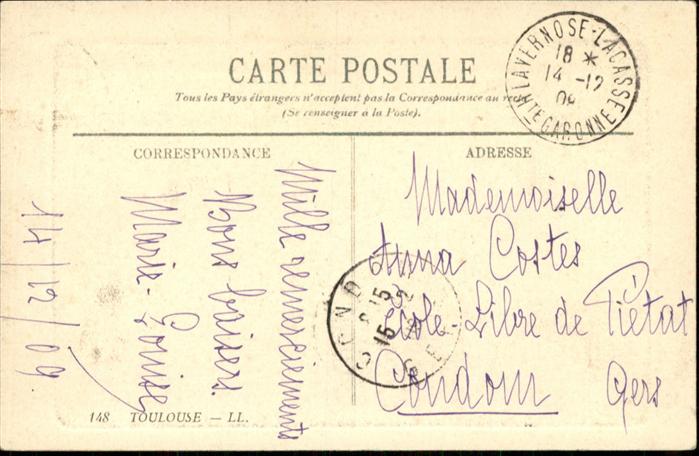 CARTE POSTALE
Tous les Pays étrangers n'acceptent pas la Correspondance au
(Se renseigner à la Poste).
CORRESPONDANCE
ADRESSE
LAVERNOSE-LACASSE
18 *
14 -12
HTE GARONNE
Mille remerciements
Bons baisers.
Marie-Louise
14/12/09
Mademoiselle
Anna Costes
École Libre de Piétat
Condom Gers
COND
15
148 TOULOUSE — LL.